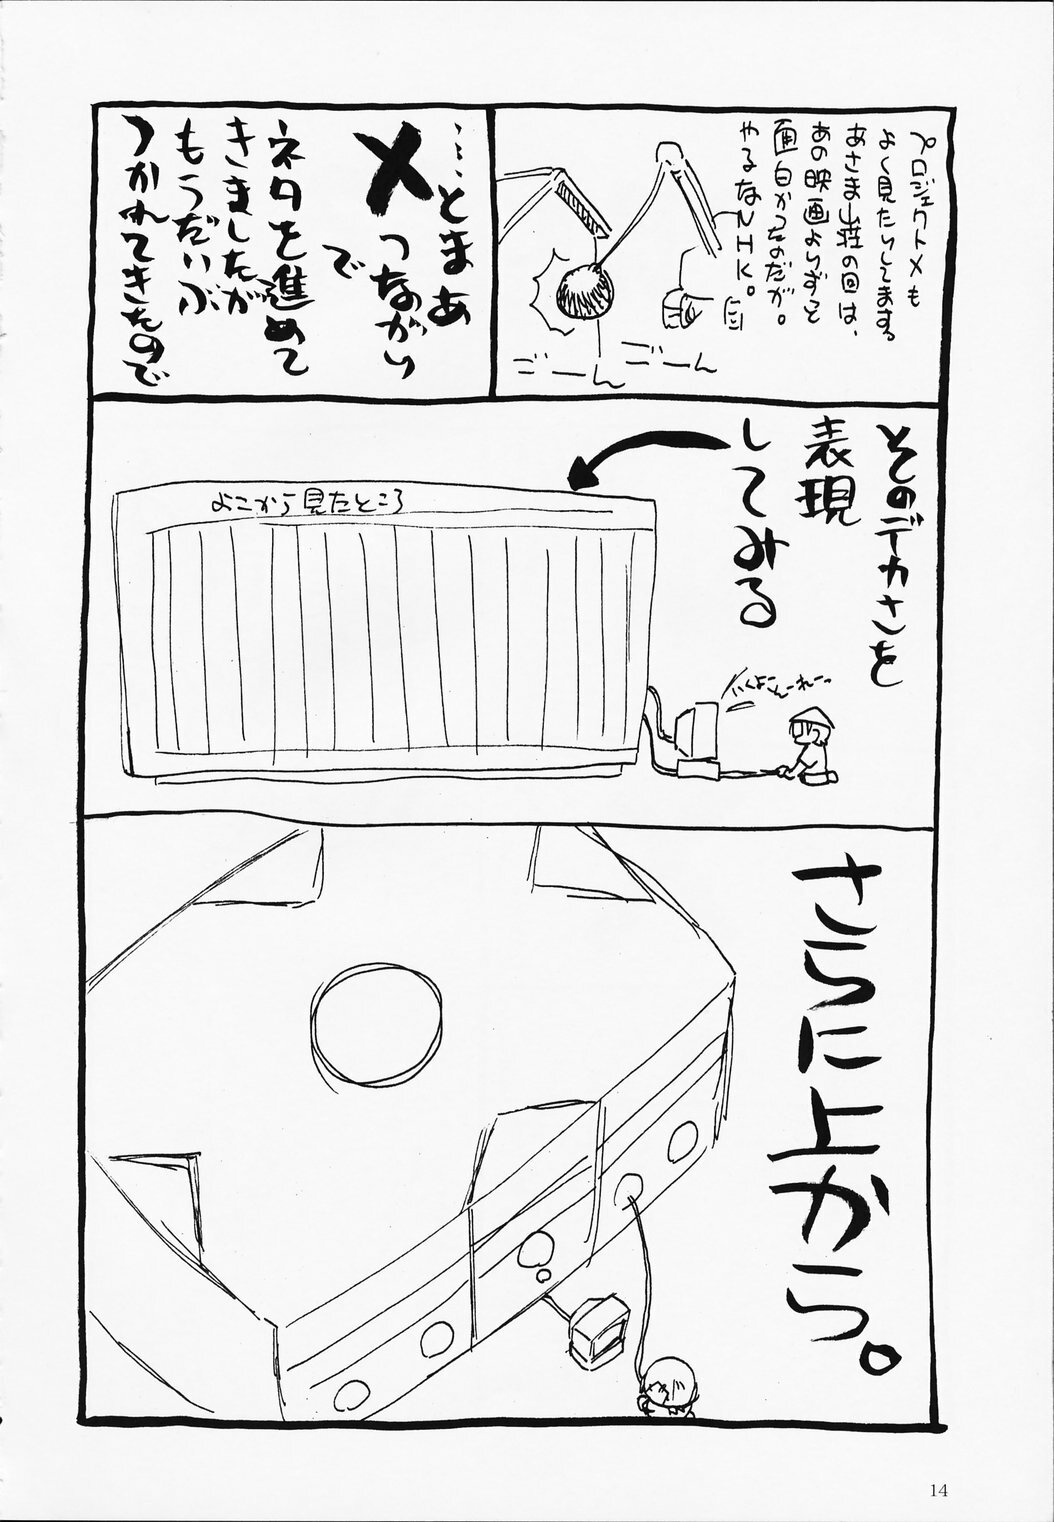 プロジェクトXも
よく見たりしてます。
あさま山荘の回は、
あの映画よりずっと
面白かったのだが。
やるなNHK。
ごーん
ごーん
……とまあ
Xつながり
で
ネタを進めて
きましたが
もうだいぶ
つかれてきたので
そのデカさを
表現
してみる
よこから見たところ
さらに上から。
14